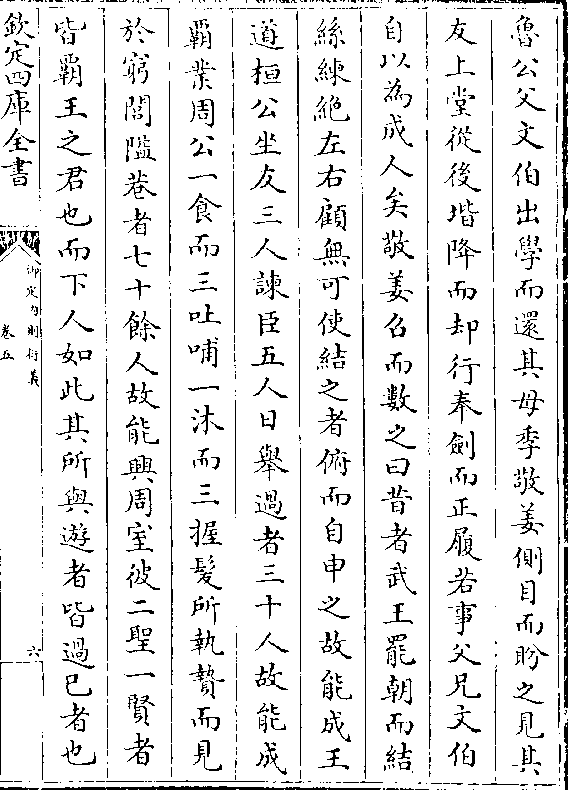 魯公父文伯出學而還其母季敬姜側目而盻之見其
友上堂從後堦降而却行奉劍而正履若事父兄文伯
自以為成人矣敬姜召而數之曰昔者武王罷朝而結
絲絑絶左右顧無可使結之者俯而自申之故能成王
道桓公坐友三人諫臣五人日舉過者三十人故能成
覇業周公一食而三吐哺一沐而三握髮所執贄而見
於窮閻隘巷者七十餘人故能興周室彼二聖一賢者
皆覇王之君也而下人如此其所與遊者皆過已者也
欽定四庫全書
御定內則衍義
卷五
六